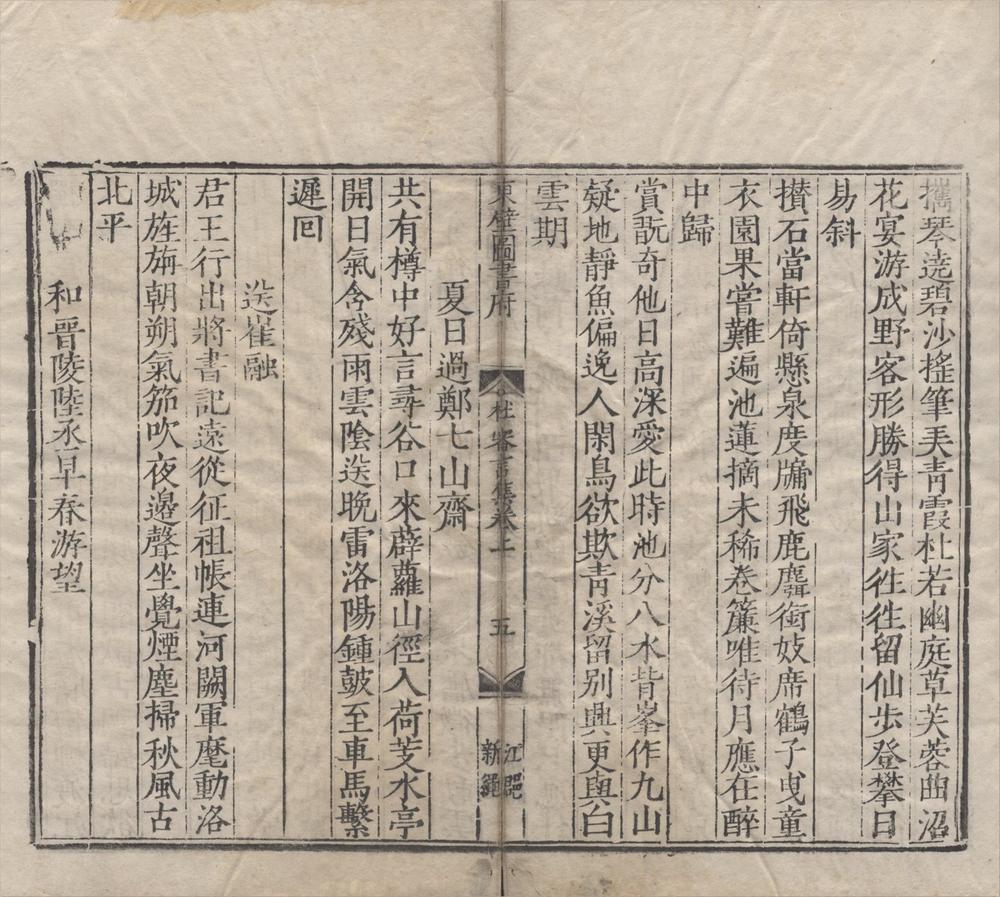 攜琴遶碧沙搖筆弄青霞杜若幽庭草芙蓉曲沼
花宴游成野客形勝得山家往往留仙步登攀日
易斜
攅石當軒倚懸泉度牖飛鹿麛銜妓席鶴子曳童
衣園果嘗難遍池蓮摘未稀卷簾唯待月應在醉
中歸
賞翫奇他日高深愛此時池分八水背峯作九山
疑地靜魚偏逸人閑鳥欲欺青溪留別興更與白
雲期
東壁圖書府
杜審言集卷二
五
江㔶
新繩
夏日過鄭七山齋
共有樽中好言尋谷口來薜蘿山徑入荷芰水亭
開日氣含殘雨雲陰送晚雷洛陽鍾鼓至車馬繫
遲回
送崔融
君王行出將書記遠從征祖帳連河闕軍麾動洛
城旌旃朝朔氣笳吹夜邊聲坐覺煙塵掃秋風古
北平
和晋陵陸丞早春游望